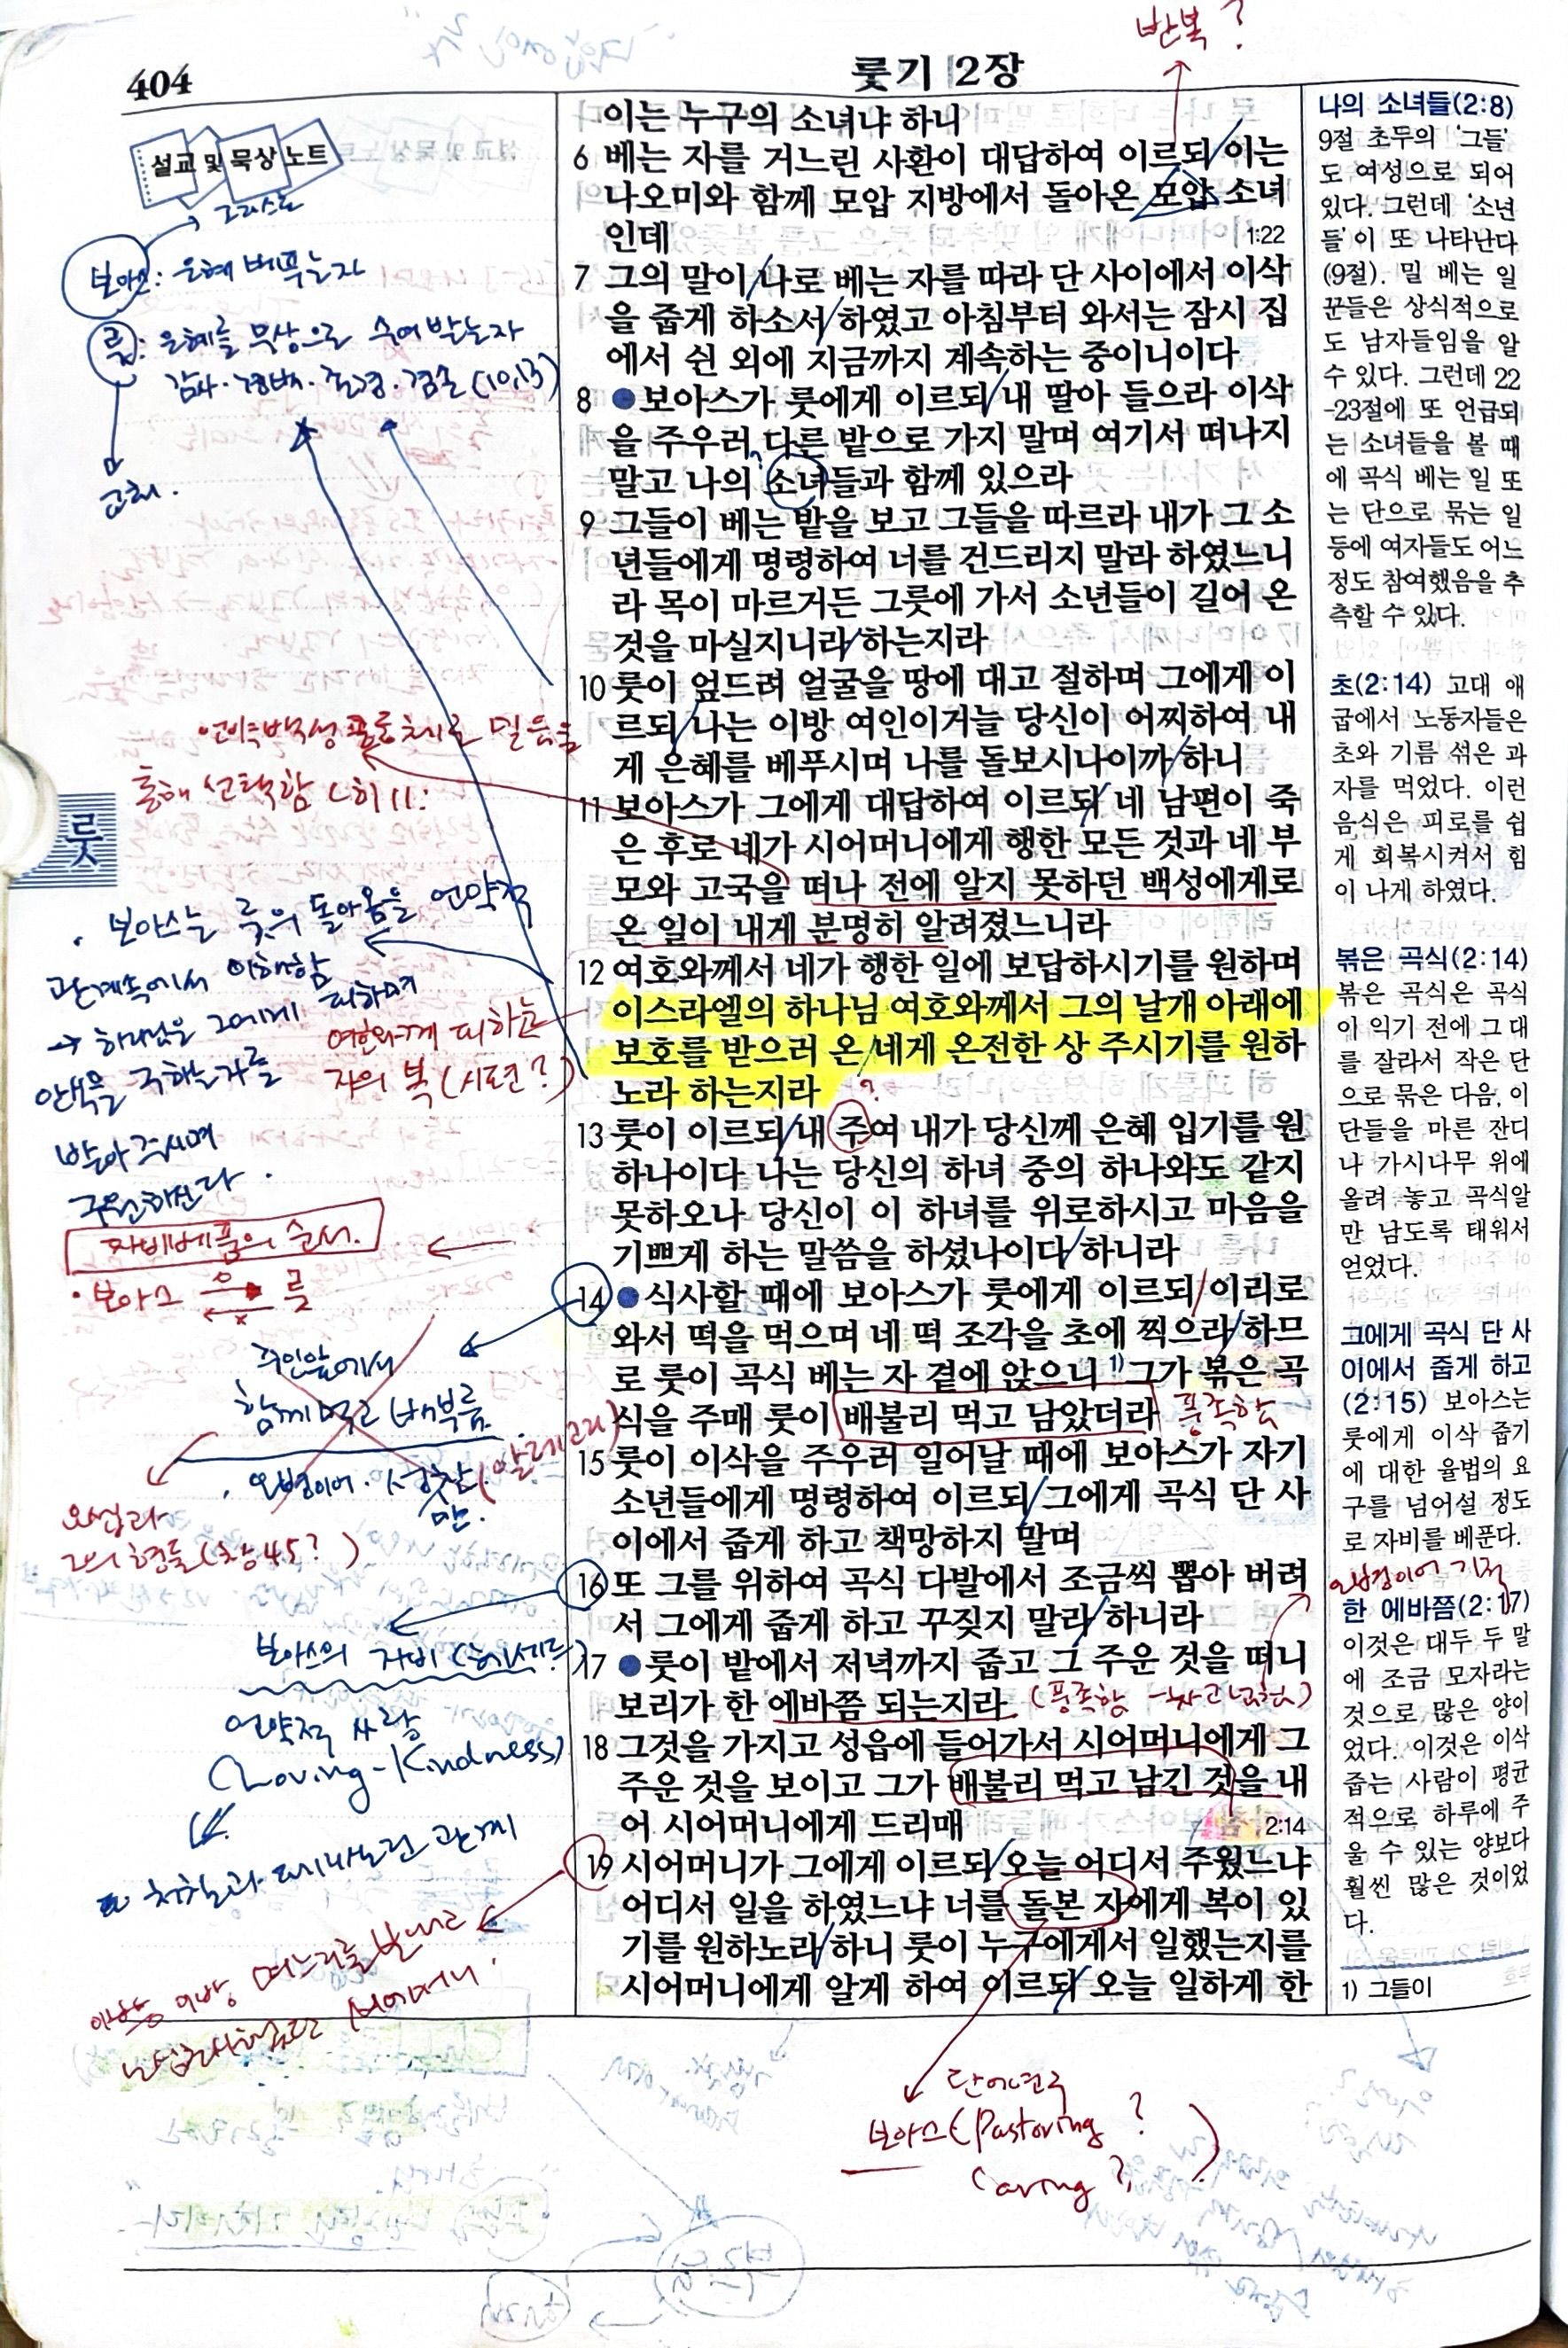 404
룻기 2장
반복?
설교 및 묵상 노트
그리스도
보아스: 은혜 베푸는 자
룻: 은혜를 무상으로 수여 받는 자
감사·경배·존경·겸손 (10,13)
교회.
통해 선택함 (히 11:
룻
보아스는 룻의 돌아옴을 언약적
관계속에서 이해함
→ 하나님은 그에게 피하며
안식을 구하는 자를
받아주시며
구원하신다.
여호와께 피하는
자의 복 (시편?)
자비 베풂의 순서.
보아스 룻
주인앞에서
함께 먹고 배부름.
오병이어·성찬
요셉과
그의 형들 (창 45?)
보아스의 자비 (헤세드)
언약적 사랑
(Loving-Kindness)
이방 며느리를 보내고
이는 누구의 소녀냐 하니
6 베는 자를 거느린 사환이 대답하여 이르되 이는
나오미와 함께 모압 지방에서 돌아온 모압 소녀
인데 1:22
7 그의 말이 나로 베는 자를 따라 단 사이에서 이삭
을 줍게 하소서 하였고 아침부터 와서는 잠시 집
에서 쉰 외에 지금까지 계속하는 중이니이다
8 ●보아스가 룻에게 이르되 내 딸아 들으라 이삭
을 주우러 다른 밭으로 가지 말며 여기서 떠나지
말고 나의 소녀들과 함께 있으라
9 그들이 베는 밭을 보고 그들을 따르라 내가 그 소
년들에게 명령하여 너를 건드리지 말라 하였느니
라 목이 마르거든 그릇에 가서 소년들이 길어 온
것을 마실지니라 하는지라
10 룻이 엎드려 얼굴을 땅에 대고 절하며 그에게 이
르되 나는 이방 여인이거늘 당신이 어찌하여 내
게 은혜를 베푸시며 나를 돌보시나이까 하니
11 보아스가 그에게 대답하여 이르되 네 남편이 죽
은 후로 네가 시어머니에게 행한 모든 것과 네 부
모와 고국을 떠나 전에 알지 못하던 백성에게로
온 일이 내게 분명히 알려졌느니라
12 여호와께서 네가 행한 일에 보답하시기를 원하며
이스라엘의 하나님 여호와께서 그의 날개 아래에
보호를 받으러 온 네게 온전한 상 주시기를 원하
노라 하는지라
?
13 룻이 이르되 내 주여 내가 당신께 은혜 입기를 원
하나이다 나는 당신의 하녀 중의 하나와도 같지
못하오나 당신이 이 하녀를 위로하시고 마음을
기쁘게 하는 말씀을 하셨나이다 하니라
14 ●식사할 때에 보아스가 룻에게 이르되 이리로
와서 떡을 먹으며 네 떡 조각을 초에 찍으라 하므
로 룻이 곡식 베는 자 곁에 앉으니 1)그가 볶은 곡
식을 주매 룻이 배불리 먹고 남았더라 풍족함
15 룻이 이삭을 주우러 일어날 때에 보아스가 자기
소년들에게 명령하여 이르되 그에게 곡식 단 사
이에서 줍게 하고 책망하지 말며
16 또 그를 위하여 곡식 다발에서 조금씩 뽑아 버려
서 그에게 줍게 하고 꾸짖지 말라 하니라
17 ●룻이 밭에서 저녁까지 줍고 그 주운 것을 떠니
보리가 한 에바쯤 되는지라 (풍족함 - 차고 넘침)
18 그것을 가지고 성읍에 들어가서 시어머니에게 그
주운 것을 보이고 그가 배불리 먹고 남긴 것을 내
어 시어머니에게 드리매 2:14
19 시어머니가 그에게 이르되 오늘 어디서 주웠느냐
어디서 일을 하였느냐 너를 돌본 자에게 복이 있
기를 원하노라 하니 룻이 누구에게서 일했는지를
시어머니에게 알게 하여 이르되 오늘 일하게 한
단어연구
보아스 (Pastoring ?
Caring ?)
나의 소녀들(2:8)
9절 초두의 '그들'
도 여성으로 되어
있다. 그런데 '소년
들'이 또 나타난다
(9절). 밀 베는 일
꾼들은 상식적으로
도 남자들임을 알
수 있다. 그런데 22
-23절에 또 언급되
는 소녀들을 볼 때
에 곡식 베는 일 또
는 단으로 묶는 일
등에 여자들도 어느
정도 참여했음을 추
측할 수 있다.
초(2:14) 고대 애
굽에서 노동자들은
초와 기름 섞은 과
자를 먹었다. 이런
음식은 피로를 쉽
게 회복시켜서 힘
이 나게 하였다.
볶은 곡식(2:14)
볶은 곡식은 곡식
이 익기 전에 그 대
를 잘라서 작은 단
으로 묶은 다음, 이
단들을 마른 잔디
나 가시나무 위에
올려 놓고 곡식알
만 남도록 태워서
얻었다.
그에게 곡식 단 사
이에서 줍게 하고
(2:15) 보아스는
룻에게 이삭 줍기
에 대한 율법의 요
구를 넘어설 정도
로 자비를 베푼다.
오병이어 기적
한 에바쯤(2:17)
이것은 대두 두 말
에 조금 모자라는
것으로, 많은 양이
었다. 이것은 이삭
줍는 사람이 평균
적으로 하루에 주
울 수 있는 양보다
훨씬 많은 것이었
다.
1) 그들이